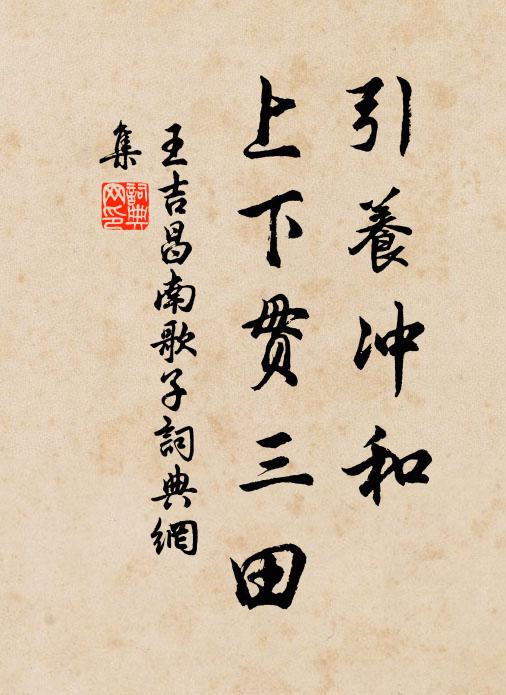 引養冲和
上下贯三田
王吉昌南歌子詞典網
集
詞典網印